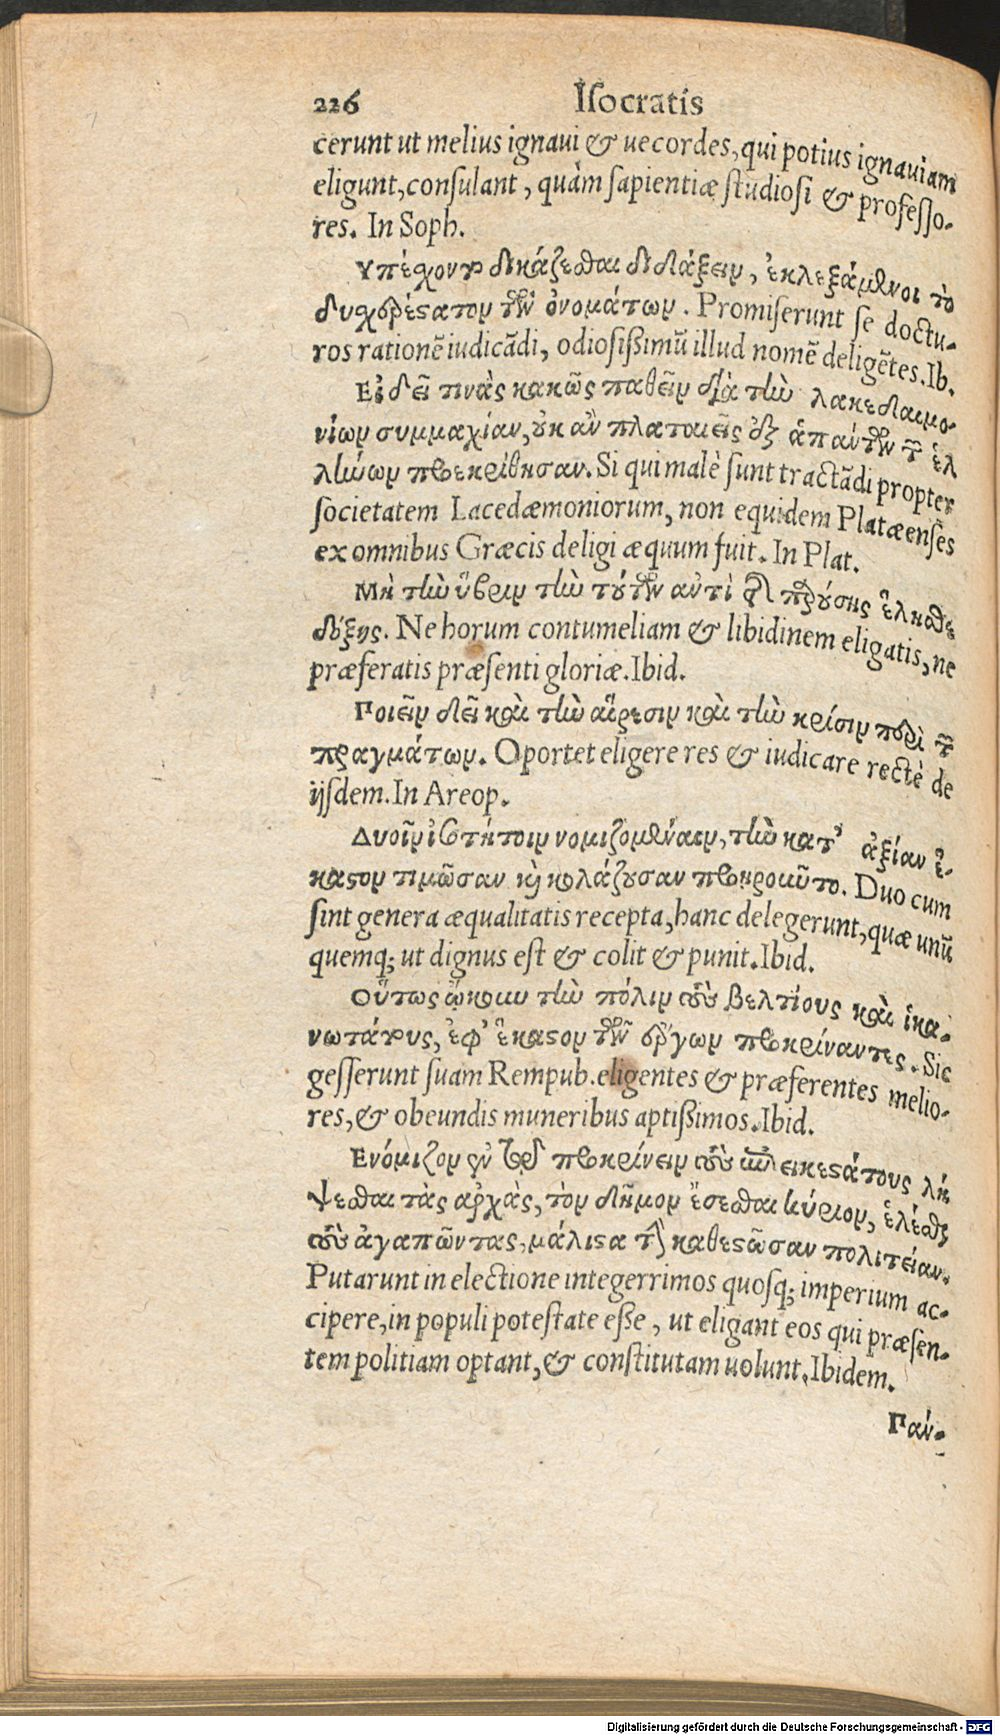 226 Isocratis
cerunt ut melius ignaui & uecordes, qui potius ignauiam
eligunt, consulant, quàm sapientiæ studiosi & professo-
res. In Soph.
Υπέχοντο δικάζεσθαι διδάξειν, ἐκλεξάμενοι τὸ
δυχερέστατον τῶν ὀνομάτων. Promiserunt se doctu-
ros rationẽ iudicãdi, odiosißimũ illud nomẽ deligẽtes. Ib.
Εἰ δεῖ τινὰς κακῶς παθεῖν διὰ τὴν λακεδαιμο-
νίων συμμαχίαν, οὐκ ἂν πλαταιεῖς ἐξ ἁπάντων τῶν ἑλ
λήνων προεκρίθησαν. Si qui malè sunt tractãdi propter
societatem Lacedæmoniorum, non equidem Platæenses
ex omnibus Græcis deligi æquum fuit. In Plat.
Μὴ τὴν ὕβριν τὴν τούτων ἀντὶ τῆς παρούσης ἕλησθε
δόξης. Ne horum contumeliam & libidinem eligatis, ne
præferatis præsenti gloriæ. Ibid.
Ποιεῖν δεῖ καὶ τὴν αἵρεσιν καὶ τὴν κρίσιν περὶ τῶν
πραγμάτων. Oportet eligere res & iudicare rectè de
ijsdem. In Areop.
Δυοῖν ἰσοτήτοιν νομιζομέναιν, τὴν κατ' ἀξίαν ἕ-
καστον τιμῶσαν καὶ κολάζουσαν προῃροῦντο. Duo cum
sint genera æqualitatis recepta, hanc delegerunt, quæ unũ
quemq; ut dignus est & colit & punit. Ibid.
Οὕτως ᾤκουν τὴν πόλιν τοὺς βελτίους καὶ ἱκα-
νωτάτους, ἐφ' ἕκαστον τῶν ἔργων προκρίναντες. Sic
gesserunt suam Rempub. eligentes & præferentes melio-
res, & obeundis muneribus aptißimos. Ibid.
Ενόμιζον ἐν τῷ προκρίνειν τοὺς ἐπιεικεστάτους λή
ψεσθαι τὰς ἀρχὰς, τὸν δῆμον ἔσεσθαι κύριον, ἑλέσθαι
τοὺς ἀγαπῶντας, μάλιστα τὴν καθεστῶσαν πολιτείαν.
Putarunt in electione integerrimos quosq; imperium ac-
cipere, in populi potestate eße, ut eligant eos qui præsen-
tem politiam optant, & constitutam uolunt. Ibidem.
Παύ-
Digitalisierung gefördert durch die Deutsche Forschungsgemeinschaft - DFG